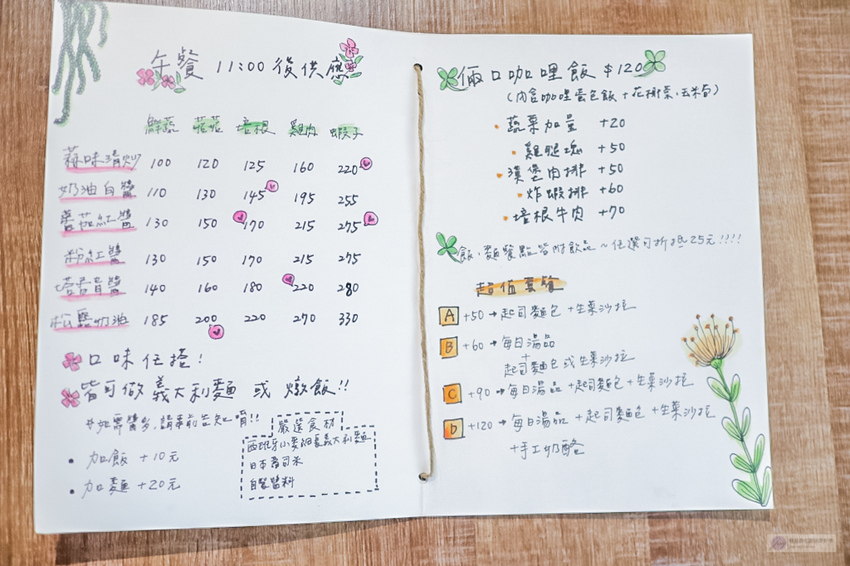 午餐 11:00 後供應
鮮蔬 菇菇 培根 雞肉 蝦子
蒜味清炒 100 120 125 160 220
奶油白醬 110 130 145 195 255
番茄紅醬 130 150 170 215 275
粉紅醬 130 150 170 215 275
塔香青醬 140 160 180 220 280
松露奶油 185 200 220 270 330
口味任搭!
皆可做義大利麵 或 燉飯!!
#如需醬多,請事前告知唷!!
• 加飯 +10元
• 加麵 +20元
嚴選食材
西班牙小麥細扁義大利麵
日本壽司米
自製醬料
倆口咖哩飯 $120
(內含咖哩蛋包飯 + 花椰菜、玉米筍)
• 蔬菜加量 +20
• 雞腿塊 +50
• 漢堡肉排 +50
• 炸蝦排 +60
• 培根牛肉 +70
飯、麵餐點皆附飲品~任選可折抵25元!!!!
超值套餐
A +50 → 起司麵包 + 生菜沙拉
B +60 → 每日湯品
+
起司麵包 或 生菜沙拉
C +90 → 每日湯品 + 起司麵包 + 生菜沙拉
D +120 → 每日湯品 + 起司麵包 + 生菜沙拉
+ 手工奶酪